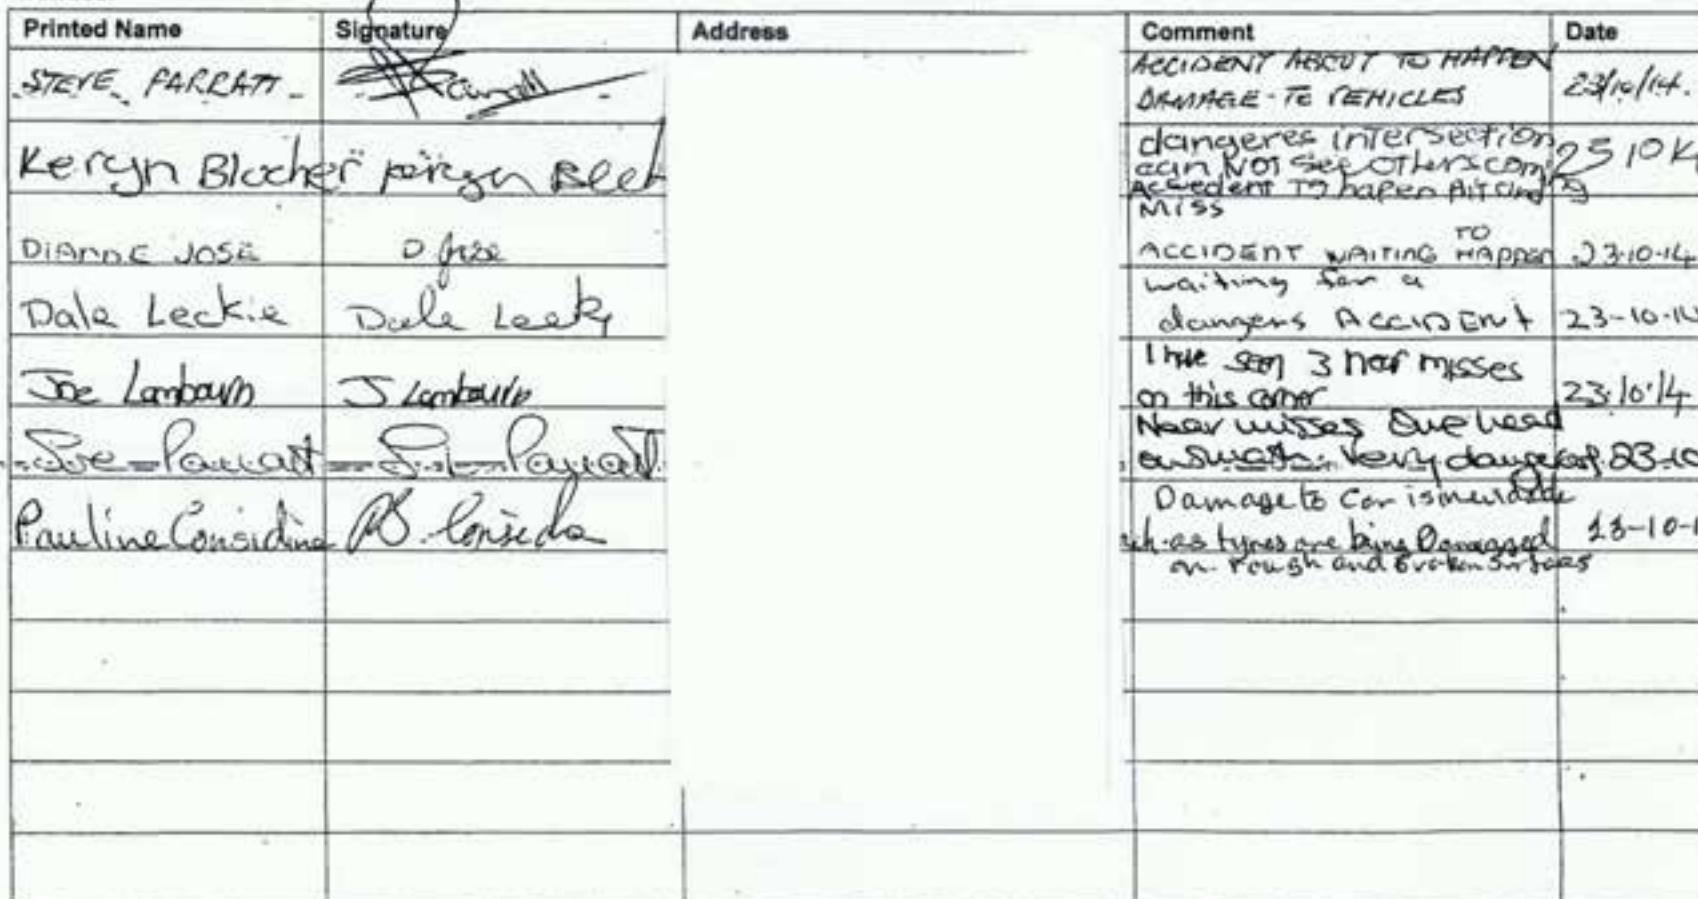 Printed Name Signature Address Comment Date
STEVE PARRATT ACCIDENT ABOUT TO HAPPEN
DAMAGE TO VEHICLES 23/10/14.
Keryn Blocher dangeres intersection
can NOT see others
Accedent To hapen
Miss
DIANNE JOSE D Jose ACCIDENT WAITING TO HAPPEN 23-10-14
Dale Leckie Dale waiting for a
dangers ACCIDENT 23-10-1
Joe Lambourn J Lambourn I have seen 3 near misses
on this corner 23.10.14
Sue Parratt Near misses
Very 23-10
Pauline Considine Damage to Car is
as tyres are being Damaged 23-10-1
on rough and Broken Surfaces